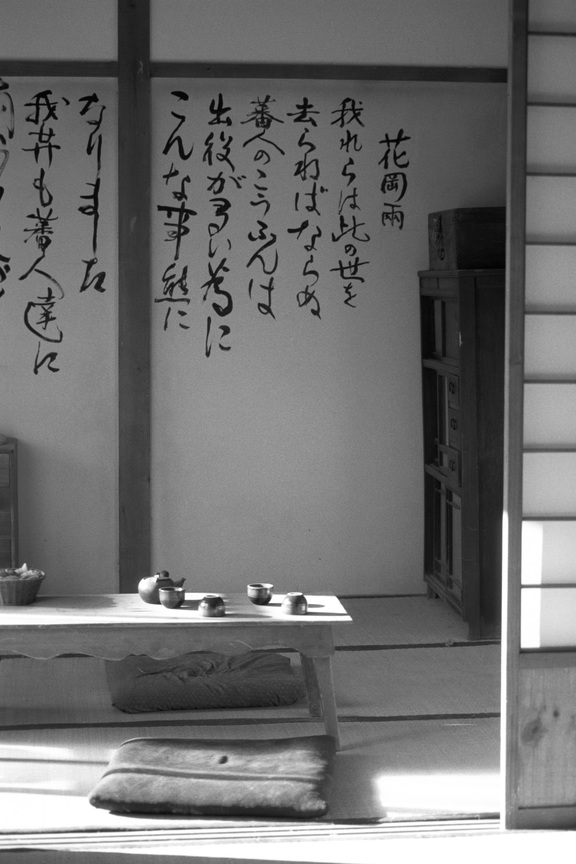 花岡雨
我れらは此の世を
去らねばならぬ
蕃人のこうふんは
出役が多い為に
こんな事態に
なりました
我等も蕃人達に